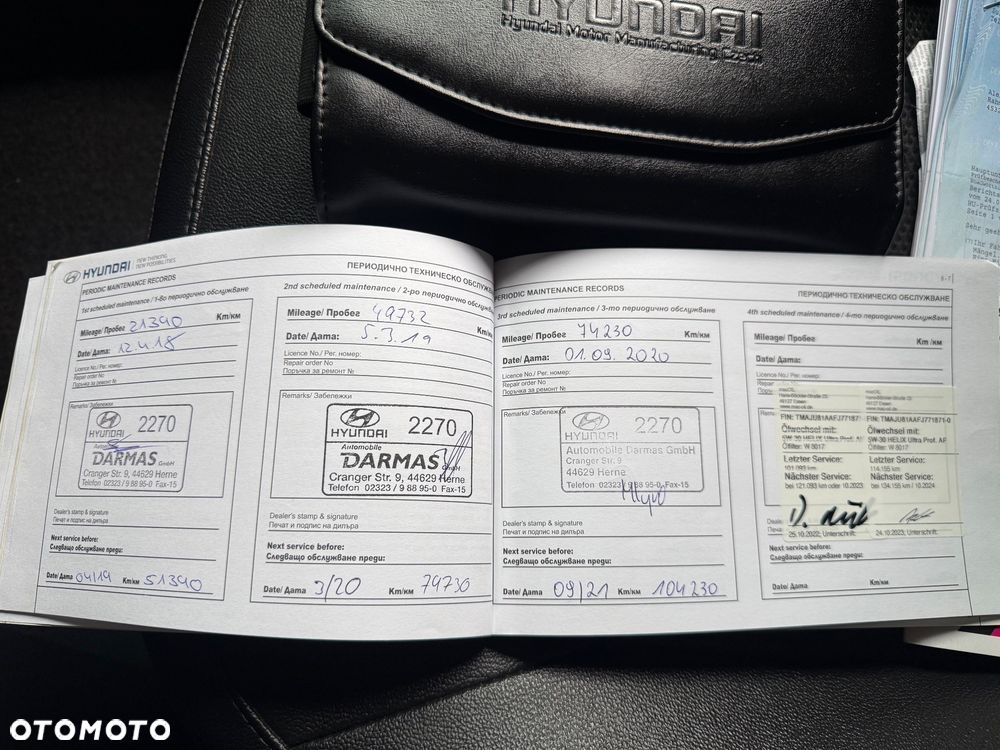 HYUNDAI
Hyundai Motor Manufacturing Czech
HYUNDAI NEW THINKING. NEW POSSIBILITIES.
PERIODIC MAINTENANCE RECORDS
1st scheduled maintenance / 1-во периодично обслужване
Mileage/ Пробег 21390 Km/км
Date/ Дата: 12.4.18
Licence No./ Рег. номер:
Repair order No
Поръчка за ремонт №
Remarks/ Забележки
HYUNDAI 2270
DARMAS GmbH
Cranger Str. 9, 44629 Herne
Telefon 02323 / 9 88 95-0 Fax-15
Dealer's stamp & signature
Печат и подпис на дилъра
Next service before:
Следващо обслужване преди:
Date/ Дата 04/19 Km/км 51390
ПЕРИОДИЧНО ТЕХНИЧЕСКО ОБСЛУЖВАНЕ
2nd scheduled maintenance / 2-ро периодично обслужване
Mileage/ Пробег 49732 Km/км
Date/ Дата: 5.3.19
Licence No./ Рег. номер:
Repair order No
Поръчка за ремонт №
Remarks/ Забележки
HYUNDAI 2270
Automobile
DARMAS GmbH
Cranger Str. 9, 44629 Herne
Telefon 02323 / 9 88 95-0 Fax-15
Dealer's stamp & signature
Печат и подпис на дилъра
Next service before:
Следващо обслужване преди:
Date/ Дата 3/20 Km/км 79730
PERIODIC MAINTENANCE RECORDS
3rd scheduled maintenance / 3-то периодично обслужване
Mileage/ Пробег 74230 Km/км
Date/ Дата: 01.09.2020
Licence No./ Рег. номер:
Repair order No
Поръчка за ремонт №
Remarks/ Забележки
HYUNDAI 2270
Automobile Darmas GmbH
Cranger Str. 9
44629 Herne
Telefon 02323/9 88 95-0 Fax-15
Dealer's stamp & signature
Печат и подпис на дилъра
Next service before:
Следващо обслужване преди:
Date/ Дата 09/21 Km/км 104230
6-7
ПЕРИОДИЧНО ТЕХНИЧЕСКО ОБСЛУЖВАНЕ
4th scheduled maintenance / 4-то периодично обслужване
Mileage/ Пробег Km/км
Date/ Дата:
Licence No./ Рег. номер:
FIN: TMAJU81AAFJ77187
Ölwechsel mit:
5W-30 HELIX Ultra Prof. AF
Ölfilter: W 8017
Letzter Service:
101.093 km
Nächster Service:
bei 121.093 km oder 10.2023
25.10.2022; Unterschrift:
FIN: TMAJU81AAFJ771871-0
Ölwechsel mit:
5W-30 HELIX Ultra Prof. AF
Ölfilter: W 8017
Letzter Service:
114.155 km
Nächster Service:
bei 134.155 km / 10.2024
24.10.2023; Unterschrift:
Следващо обслужване преди:
Date/ Дата Km/км
OTOMOTO